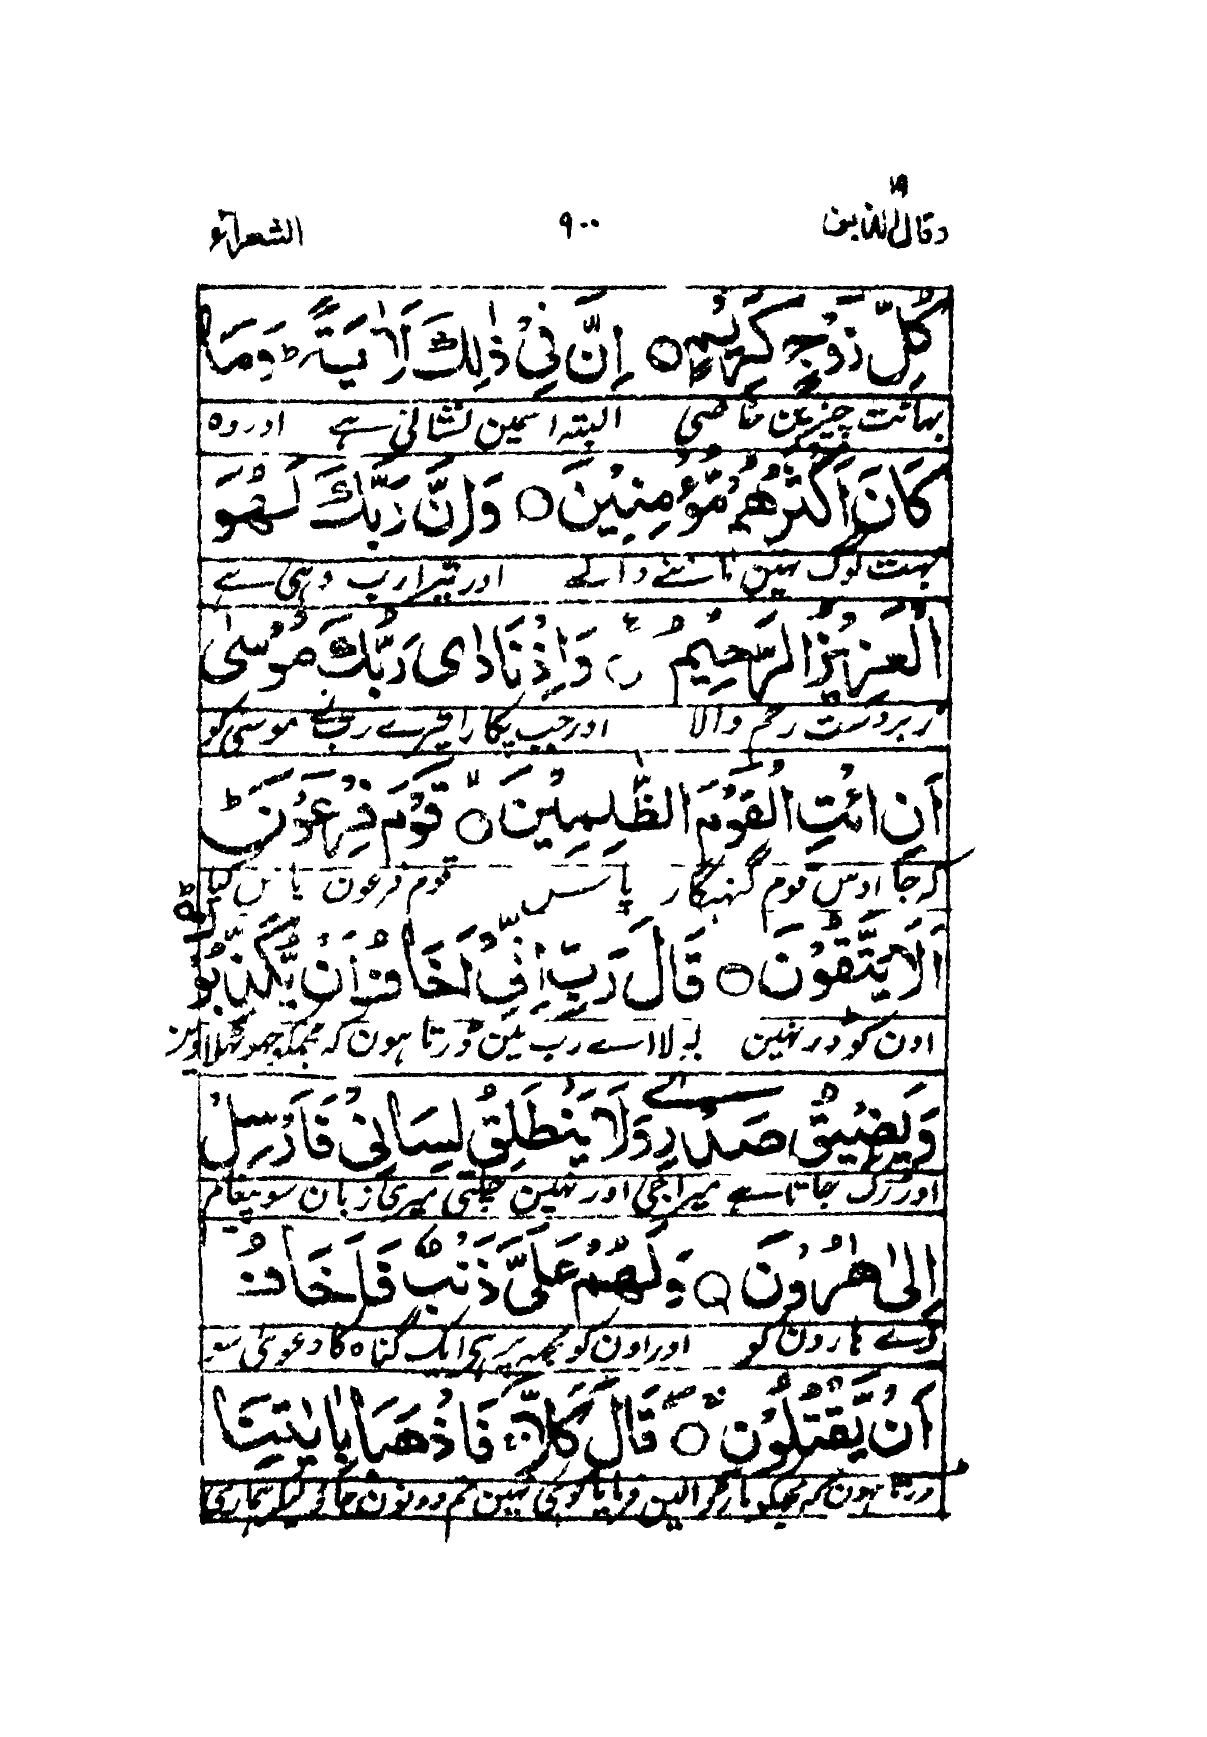 ١٩
وقال الذین ٩٠٠ الشعرآء
كُلِّ زَوْجٍ كَرِيْمٍ ○ اِنَّ فِیْ ذٰلِكَ لَاٰيَةًؕ وَمَا
بھانت چیزین خاصی البتہ اسمین نشانی ہے اور وہ
كَانَ اَكْثَرُهُمْ مُّؤْمِنِيْنَ ○ وَاِنَّ رَبَّكَ لَهُوَ
بہت لوگ نہین ماننے والے اور تیرا رب وہی ہے
الْعَزِيْزُ الرَّحِيْمُ ○ وَاِذْ نَادٰی رَبُّكَ مُوْسٰی
زبردست رحم والا اور جب پکارا تیرے رب نے موسیٰ کو
اَنِ ائْتِ الْقَوْمَ الظّٰلِمِيْنَ ○ قَوْمَ فِرْعَوْنَؕ
کہ جا اوس قوم گنہگار پاس قوم فرعون پاس کیا
اَلَا يَتَّقُوْنَ ○ قَالَ رَبِّ اِنِّیْ اَخَافُ اَنْ يُّكَذِّبُوْنِؕ
اون کو ڈر نہین بولا اے رب مین ڈرتا ہون کہ مجھکو جھوٹھلاوین
وَيَضِيْقُ صَدْرِیْ وَلَا يَنْطَلِقُ لِسَانِیْ فَاَرْسِلْ
اور رک جاتا ہے میرا جی اور نہین چلتی میری زبان سو پیغام
اِلٰی هٰرُوْنَ ○ وَلَهُمْ عَلَیَّ ذَنْۢبٌ فَاَخَافُ
کر دے ہارون کو اور اون کو مجھ پر ہی ایک گناہ کا دعویٰ سو
اَنْ يَّقْتُلُوْنِ ○ قَالَ كَلَّا فَاذْهَبَا بِاٰيٰتِنَا
ڈرتا ہون کہ مجھکو مار ڈالین فرمایا کوئی نہین تم دونون جاؤ لیکر ہماری